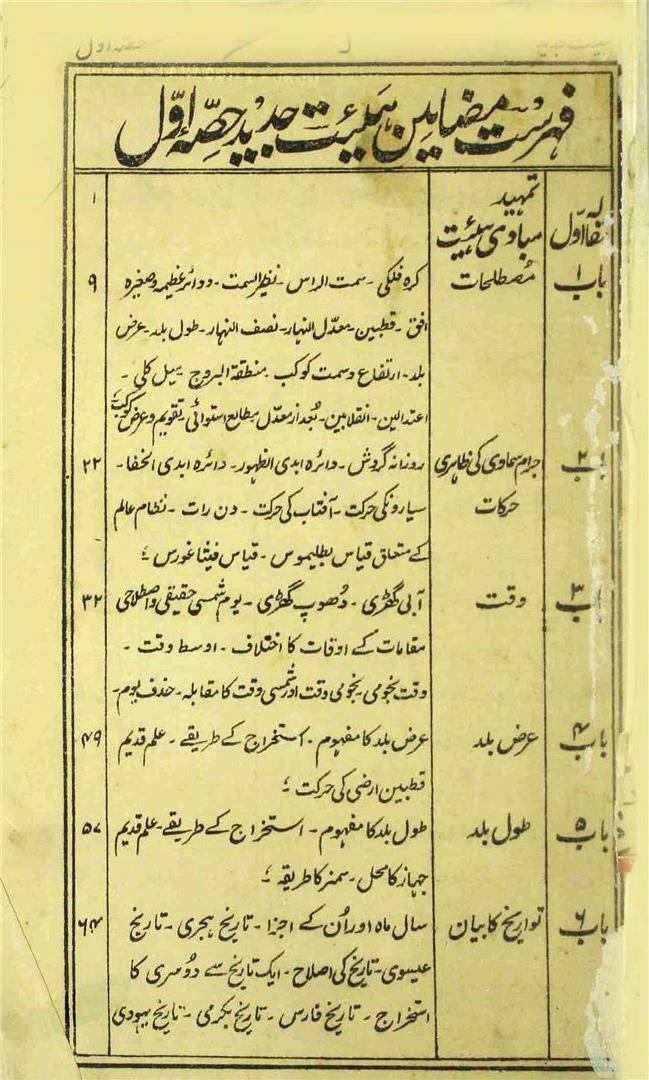 حصہ اول
فہرست مضامین ہیئیت جدید حصّہ اوّل
مقالہ اوّل تمہید ۱
مبادی ہیئت
باب ۱ مصطلحات کرہ فلکی ۔ سمت الراس ۔ نظیر السمت ۔ دوائر عظیمہ و صغیرہ ۹
افق ۔ قطبین ۔ معدّل النہار ۔ نصف النہار ۔ طول بلد ۔ عرض
بلد ۔ ارتفاع و سمت کوکب ۔ منطقۃ البروج ۔ میل کلی ۔
اعتدالین ۔ انقلابین ۔ بُعد از معدّل مطالع استوائی ۔ تقویم و عرض کوکب
باب ۲ اجرام سماوی کی ظاہری روزانہ گردش ۔ دائرہ ابدی الظہور ۔ دائرہ ابدی الخفا ۔ ۲۲
حرکات سیارونکی حرکت ۔ آفتاب کی حرکت ۔ دن رات ۔ نظام عالم
کے متعلق قیاس بطلیموس ۔ قیاس فیثاغورس ؛
باب ۳ وقت آبی گھڑی ۔ دُھوپ گھڑی ۔ یوم شمسی حقیقی و اصطلاحی ۳۲
مقامات کے اوقات کا اختلاف ۔ اوسط وقت ۔
وقت نجومی ۔ نجومی وقت اور شمسی وقت کا مقابلہ ۔ حذف یوم ۔
باب ۴ عرض بلد عرض بلد کا مفہوم ۔ استخراج کے طریقے ۔ علم قدیم ۴۹
قطبین ارضی کی حرکت ؛
باب ۵ طول بلد طول بلد کا مفہوم ۔ استخراج کے طریقے ۔ علم قدیم ۵۷
جہاز کا محل ۔ سمنر کا طریقہ ؛
باب ۶ تواریخ کا بیان سال ماہ اور اُن کے اجزا ۔ تاریخ ہجری ۔ تاریخ ۶۴
عیسوی ۔ تاریخ کی اصلاح ۔ ایک تاریخ سے دوسری کا
استخراج ۔ تاریخ فارس ۔ تاریخ بکرمی ۔ تاریخ یہودی